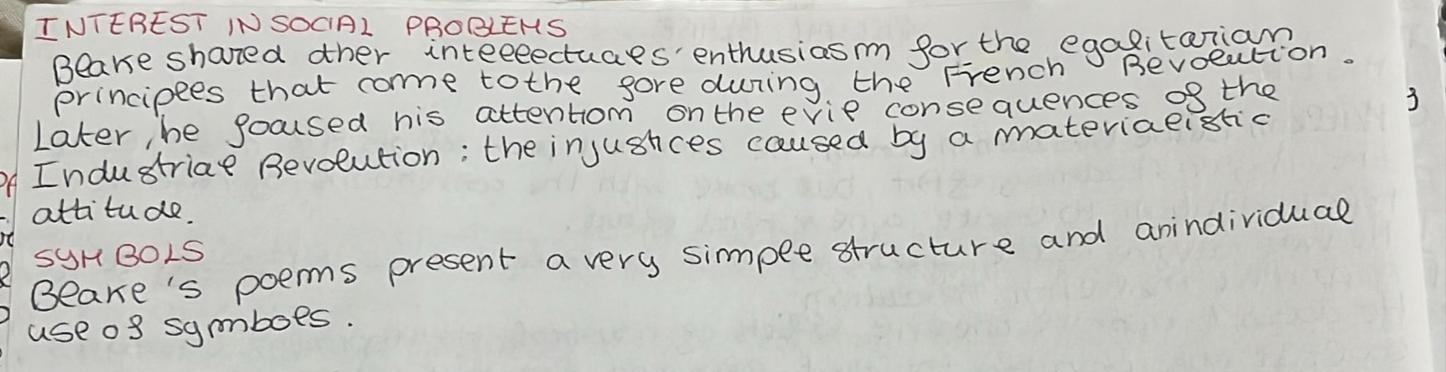 INTEREST IN SOCIAL PROBLEMS
Blake shared other intellectuals' enthusiasm for the egalitarian
principles that come to the fore during the French Revolution.
Later, he focused his attention on the evil consequences of the
Industrial Revolution: the injustices caused by a materialistic
attitude.
SYMBOLS
Blake's poems present a very simple structure and an individual
use of symbols.